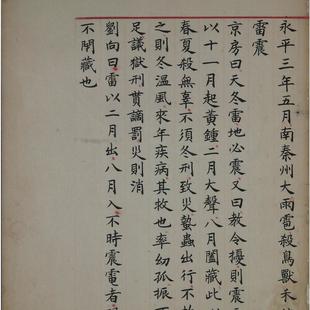 永平三年五月南秦州大雨雹殺鳥獸禾
雷震
京房曰天冬雷地必震又曰教令擾則震
以十一月起黃鍾二月大聲八月闔藏此
春夏殺無辜不須冬刑致災蟄蟲出行不
之則冬溫風來年疾病其救也率幼孤振
足議獄刑貰謫罰災則消
劉向曰雷以二月出八月入不時震電者
不閉藏也